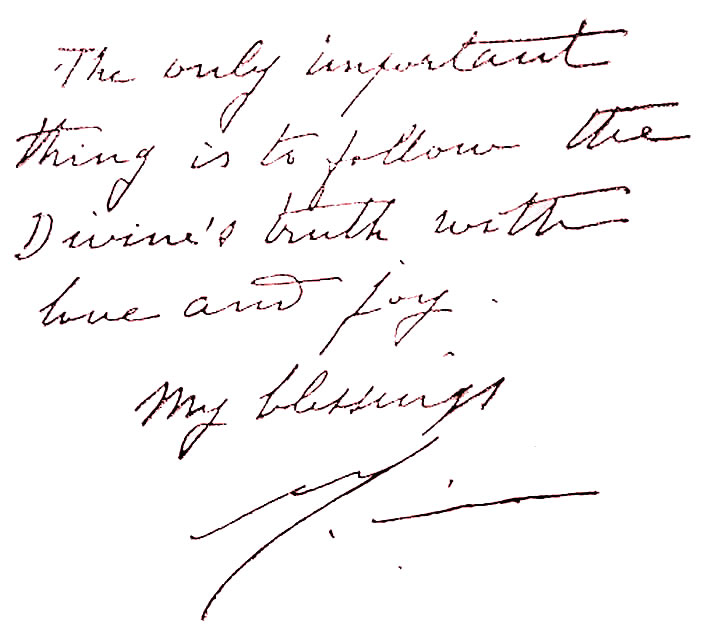 The only important
thing is to follow the
Divine's truth with
love and joy.
My blessings